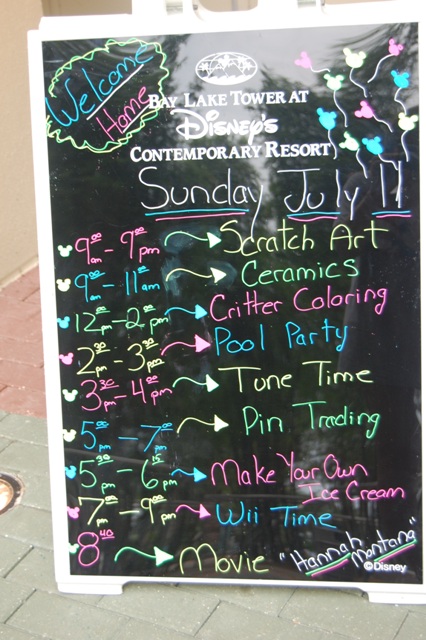 Welcome
Home
BAY LAKE TOWER AT
Disney's
CONTEMPORARY RESORT
Sunday July 11
9:00 am - 9:00 pm Scratch Art
9:00 am - 11:00 am Ceramics
12:00 pm - 2:00 pm Critter Coloring
2:30 pm - 3:30 pm Pool Party
3:30 pm - 4:00 pm Tune Time
5:00 pm - 7:00 pm Pin Trading
5:30 pm - 6:15 pm Make Your Own
Ice Cream
7:00 pm - 9:00 pm Wii Time
8:40 Movie "Hannah
Montana"
©Disney